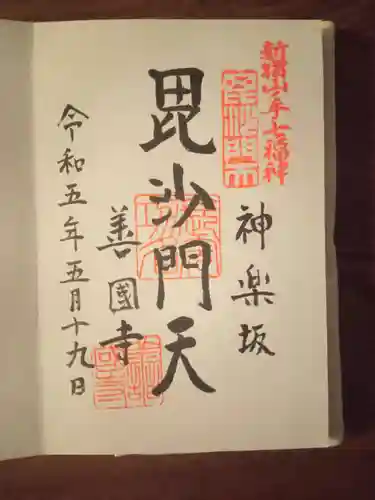 新宿山ノ手七福神
神楽坂
毘沙門天
善國寺
令和五年五月十九日